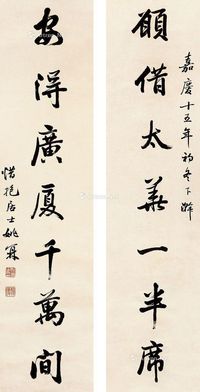 嘉慶十五年初冬下澣
願借太華一半席
安得廣厦千萬間
惜抱居士姚鼐